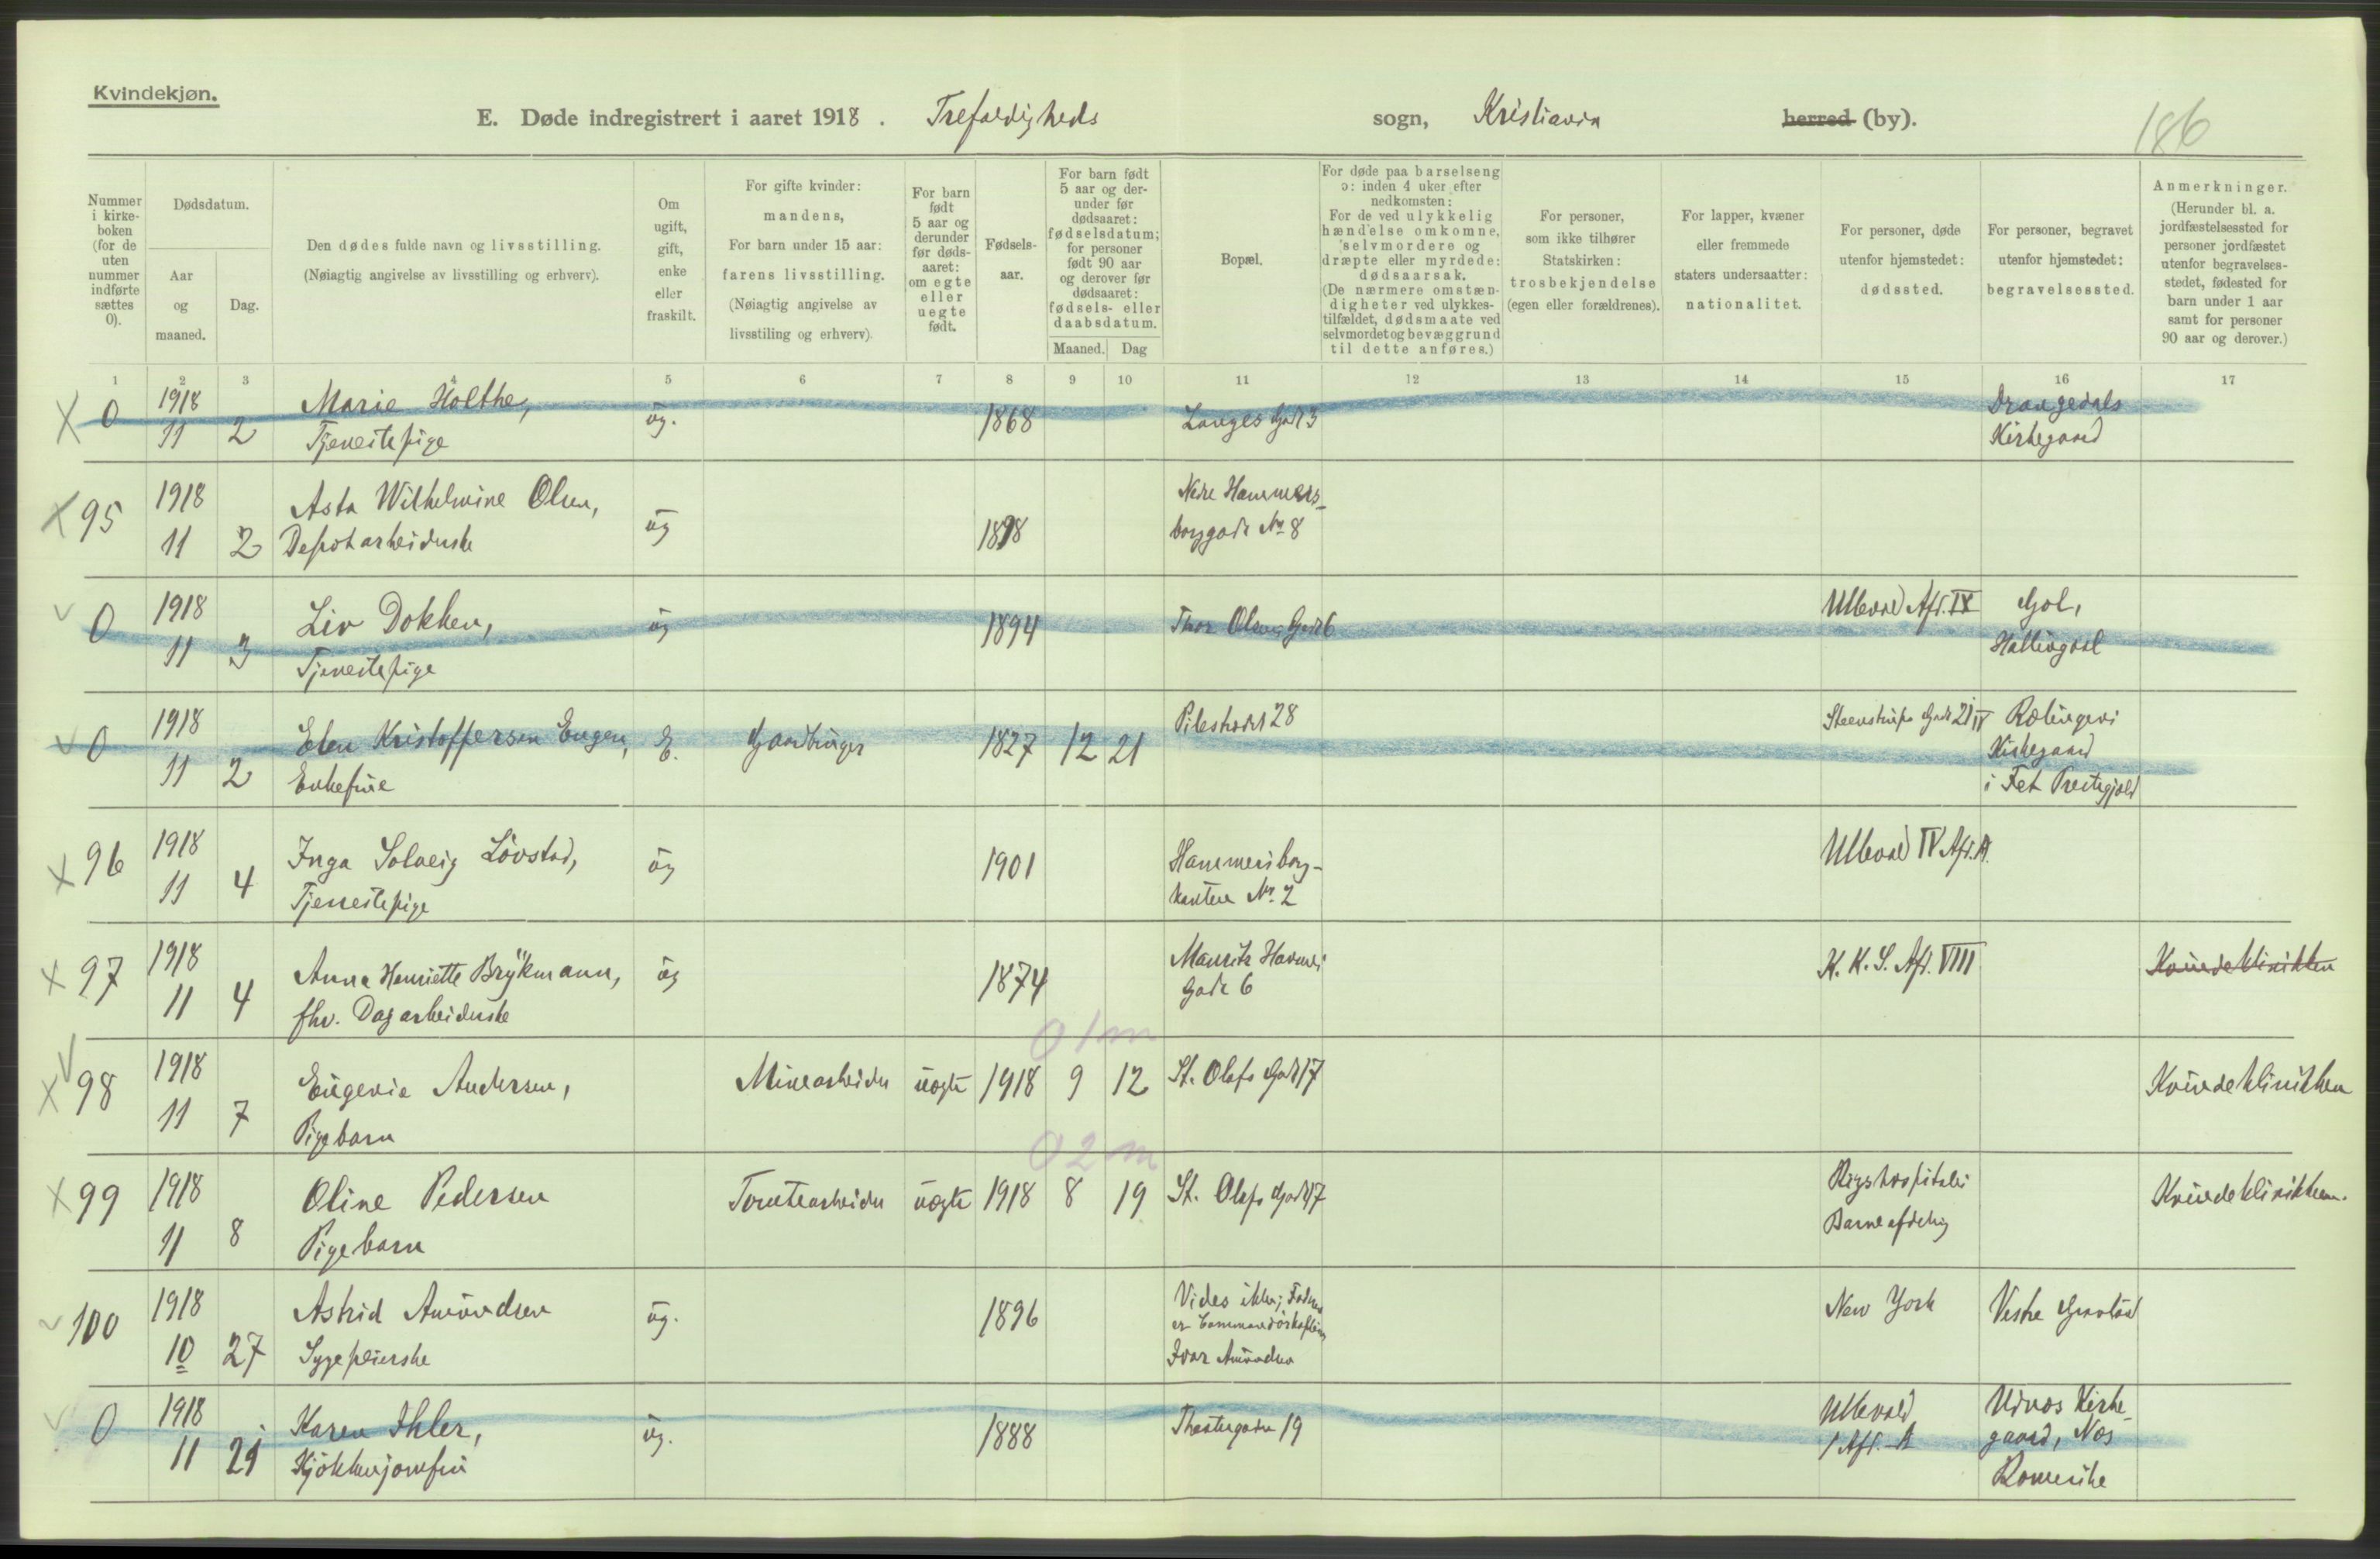 Kvindekjøn.
E. Døde indregistrert i aaret 1918. Trefoldigheds sogn, Kristiania herred (by).
186
Nummer i kirke-boken (for de uten nummer indførte sættes 0).
Dødsdatum.
Aar og maaned.
Dag.
Den dødes fulde navn og livsstilling.
(Nøiagtig angivelse av livsstilling og erhverv).
Om ugift, gift, enke eller fraskilt.
For gifte kvinder: mandens,
For barn under 15 aar: farens livsstilling.
(Nøiagtig angivelse av livsstiling og erhverv).
For barn født 5 aar og derunder før døds-aaret: om egte eller uegte født.
Fødsels-aar.
For barn født 5 aar og der-under før dødsaaret: fødselsdatum; for personer født 90 aar og derover før dødsaaret: fødsels- eller daabsdatum.
Maaned. Dag
Bopæl.
For døde paa barselseng ɔ: inden 4 uker efter nedkomsten:
For de ved ulykkelig hændelse omkomne, selvmordere og dræpte eller myrdede: dødsaarsak.
(De nærmere omstæn-digheter ved ulykkes-tilfældet, dødsmaate ved selvmordet og bevæggrund til dette anføres.)
For personer, som ikke tilhører Statskirken: trosbekjendelse (egen eller forældrenes).
For lapper, kvæner eller fremmede staters undersaatter: nationalitet.
For personer, døde utenfor hjemstedet: dødssted.
For personer, begravet utenfor hjemstedet: begravelsessted.
Anmerkninger.
(Herunder bl. a. jordfæstelsessted for personer jordfæstet utenfor begravelses-stedet, fødested for barn under 1 aar samt for personer 90 aar og derover.)
1 2 3 4 5 6 7 8 9 10 11 12 13 14 15 16 17
X 0 1918 11 2 Marie Holthe, Tjenestepige ug. 1868 Langes Gade 3 Drangedals Kirkegaard
X 95 1918 11 2 Asta Wilhelmine Olsen, Depotarbeiderske ug 1898 Nedre Hammers-borggade No 8
0 1918 11 3 Liv Dokken, Tjenestepige ug 1894 Thor Olsens Gade 6 Ullevaal Afd. IX Gol, Hallingdal
0 1918 11 2 Elen Kristoffersen Engen, Enkefrue E. Gaardbruger 1827 12 21 Pilestrædet 28 Steenstrups Gade 21 IV Rælingen Kirkegaard i Fet Prestegjeld
X 96 1918 11 4 Inga Solveig Lövstad, Tjenestepige ug 1901 Hammersborg-kanten No. 2 Ullevaal IV Afd. A.
X 97 1918 11 4 Anna Henriette Brykmann, fhv. Dagarbeiderske ug 1874 Mauritz Hansens Gade 6 K. K. S. Afd. VIII Kvindeklinikken
0 1 m
X 98 1918 11 7 Eugenie Andersen, Pigebarn Minearbeider uegte 1918 9 12 St. Olafs Gade 17 Kvindeklinikken
0 2 m
X 99 1918 11 8 Oline Pedersen Pigebarn Tomtearbeider uegte 1918 8 19 St. Olafs Gade 17 Rigshospitalets Barneafdeling Kvindeklinikken.
100 1918 10 27 Astrid Amundsen Sygepleierske ug. 1896 Vides ikke; Faderen er Commandörkaptein Ivar Amundsen New York Vestre Gravlund
0 1918 11 21 Karen Ihler, Kjökkenjomfru ug. 1888 Theatergaden 19 Ullevaal 1 Afd. A Udnes Kirke-gaard, Nes Romerike